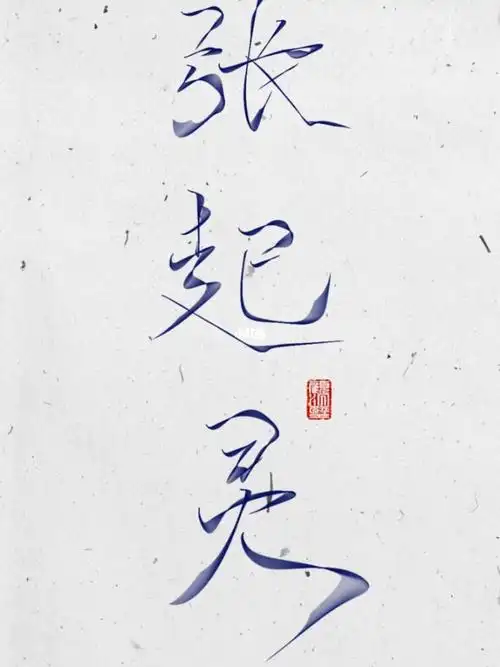 张起灵